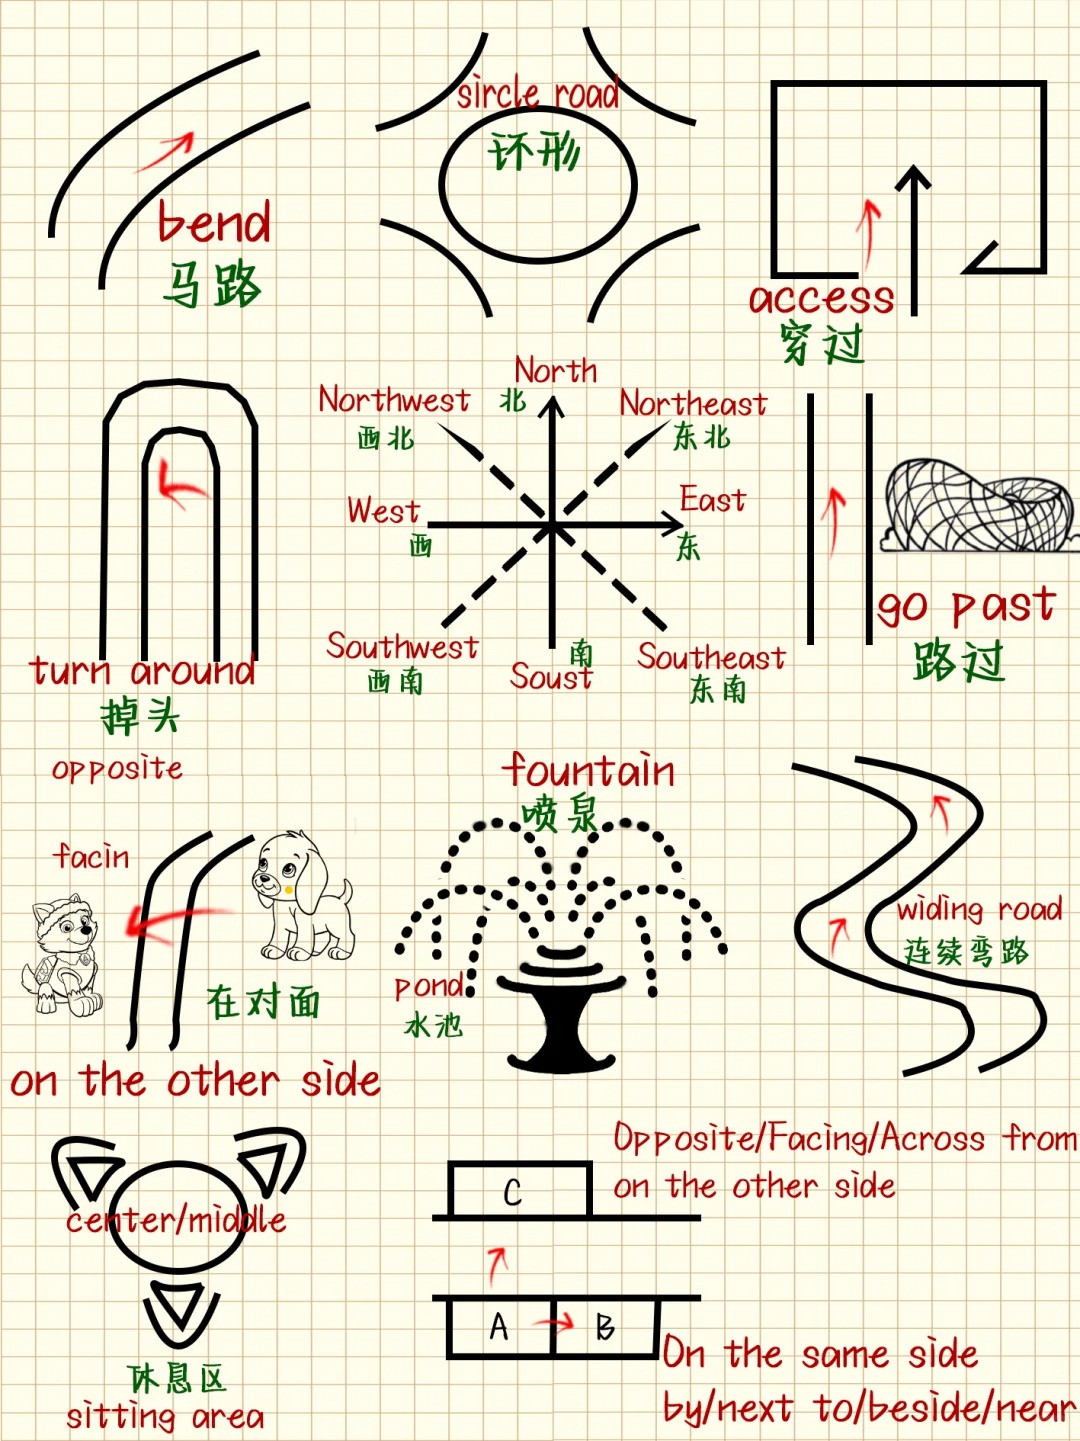 sircle road
环形
bend
马路
access
穿过
North
北
Northwest
西北
Northeast
东北
West
西
East
东
Southwest
西南
南
Soust
Southeast
东南
turn around
掉头
go past
路过
opposite
facin
在对面
on the other side
fountain
喷泉
pond
水池
widing road
连续弯路
center/middle
休息区
sitting area
Opposite/Facing/Across from
on the other side
C
A
B
On the same side
by/next to/beside/near